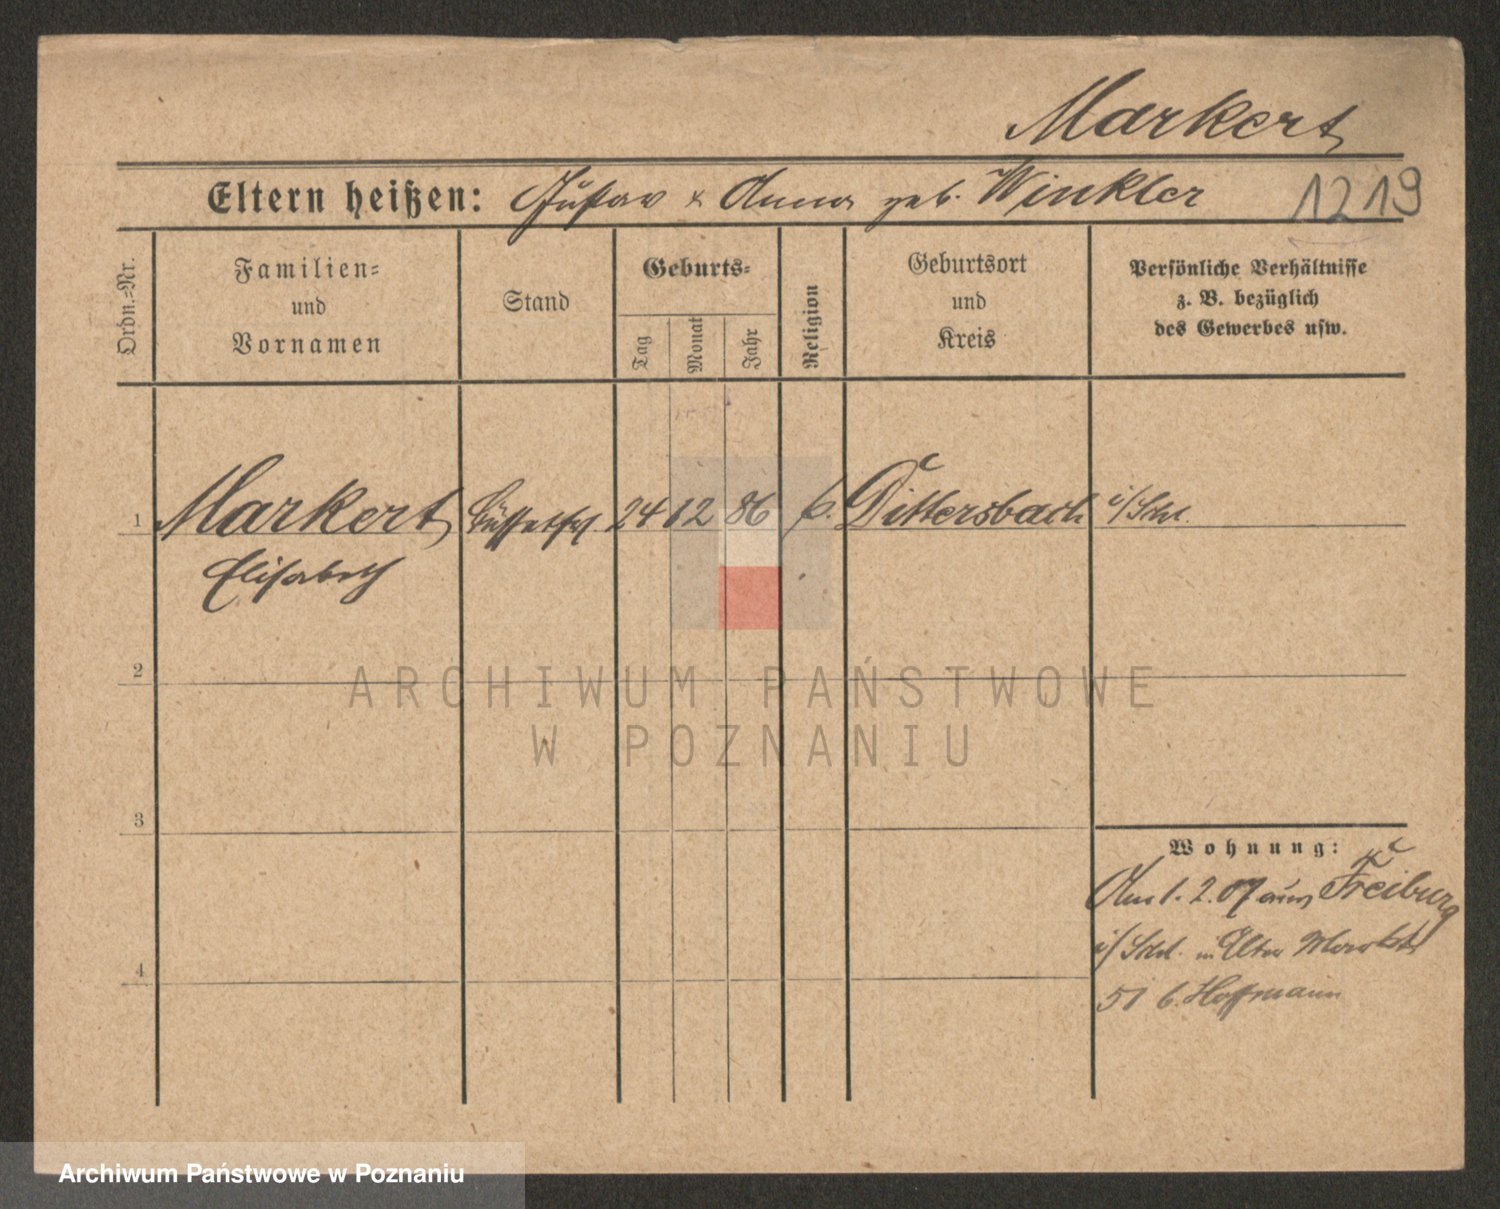 Markert
Eltern heißen: Gustav & Anna geb. Winkler 1219
Ordn.=Nr.
Familien=
und
Vornamen
Stand
Geburts=
Tag
Monat
Jahr
Religion
Geburtsort
und
Kreis
Persönliche Verhältnisse
z. B. bezüglich
des Gewerbes usw.
1 Markert Büffetfrl. 24 12 86 Dittersbach i/Schl.
Elisabeth
2
3
4
Wohnung:
Am 1. 2. 07 aus Freiburg
i/Schl. n. Alter Markt
51 b. Hoffmann
ARCHIWUM PAŃSTWOWE
W POZNANIU
Archiwum Państwowe w Poznaniu